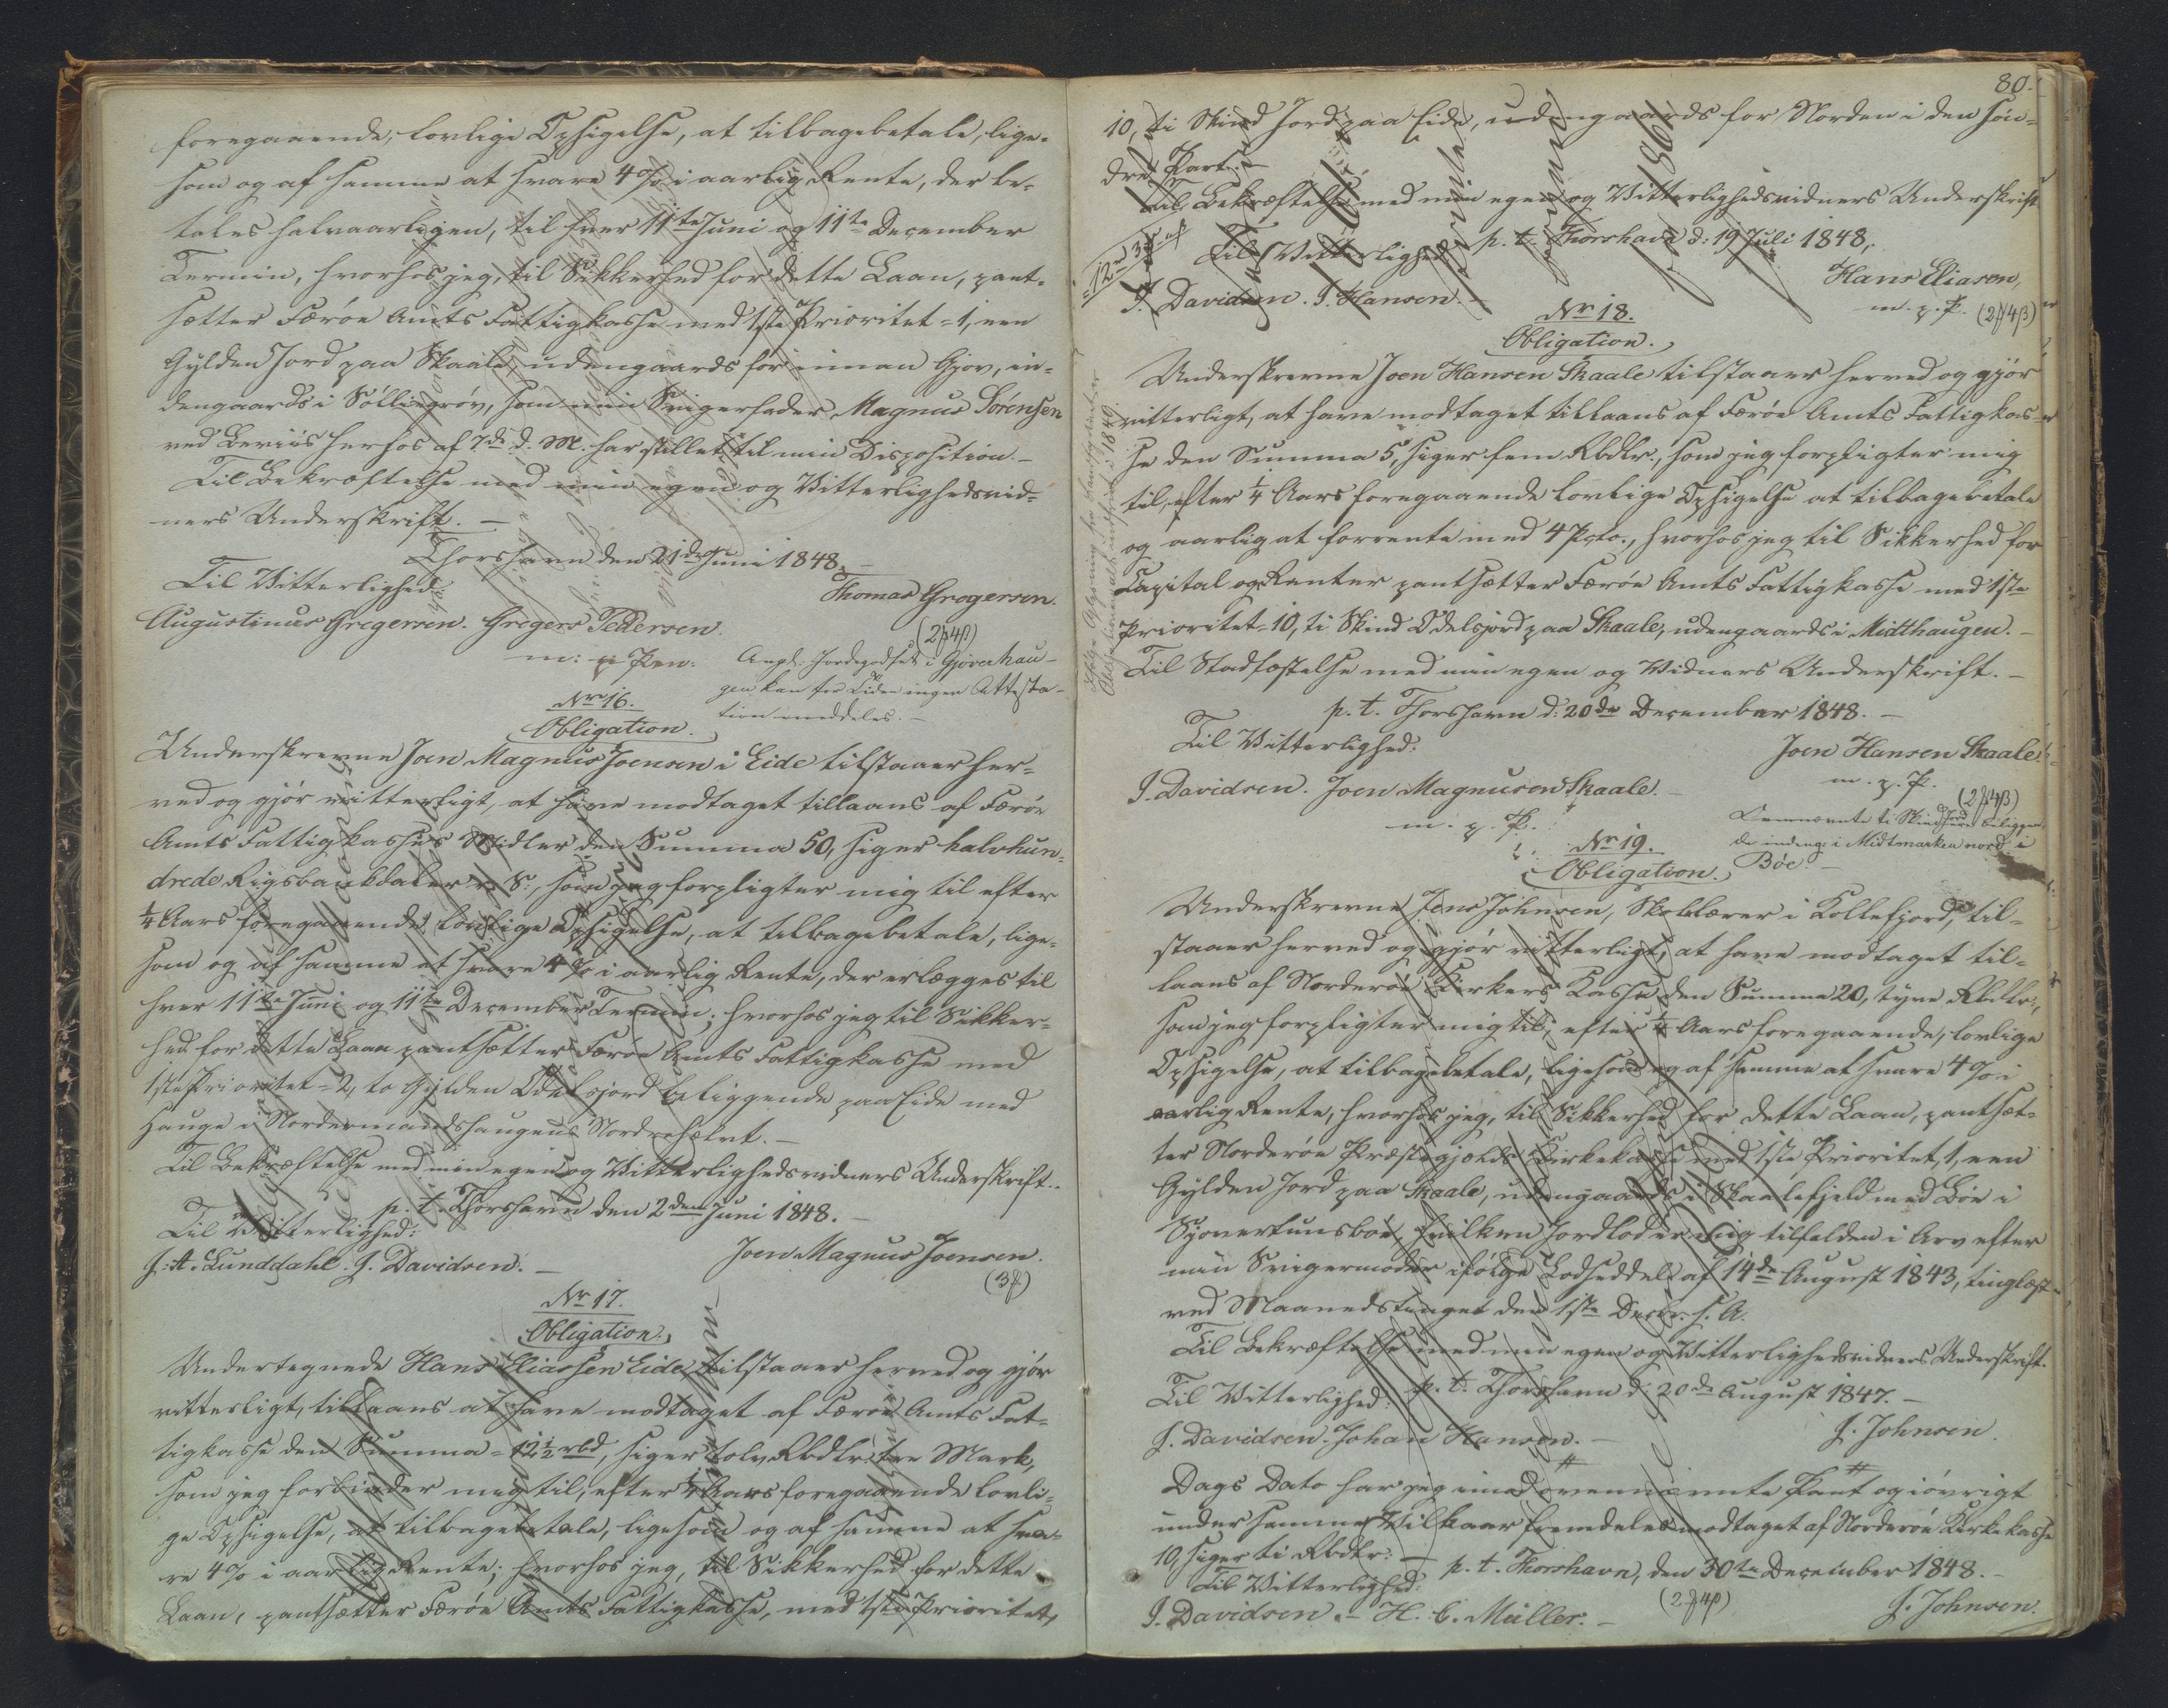 foregaaende, lovlige Opsigelse, at tilbagebetale, lige-
som og af samme at svare 4 % i aarlig Rente, der be-
tales halvaarligen, til hver 11te Juni og 11te December
Termin, hvorhos jeg, til Sikkerhed for dette Laan, pant-
sætter Færøe Amts Fattigkasse med 1ste Prioritet = 1, een
Gylden Jord paa Skaale, udengaards for innan Gjov, in-
dengaards i Sølliegrøv, som min Svigerfader Magnus Sørensen
ved Beviis herhos af 7de d. M. har stillet til min Disposition. –
Til Bekræftelse med min egen og Vitterlighedsvid-
ners Underskrift. –
Thorshavn den 21de Juni 1848. –
Til Vitterlighed:
Thomas Gregersen.
Augustinus Gregersen. Gregers Pedersen.
(2 f 4 β)
m: p: Pen:
Angl. Jordegodset i Gjoverhau-
gen kan for Tiden ingen Attesta-
tion meddeles. –
No 16.
Obligation.
Underskrevne Joen Magnus Joensen i Eide tilstaaer her-
ved og gjør vitterligt, at have modtaget tillaans af Færøe
Amts Fattigkasses Midler den Summa 50, siger halvhun-
drede Rigsbankdaler r. S., som jeg forpligter mig til efter
1/4 Aars foregaaende lovlige Opsigelse, at tilbagebetale, lige-
som og af samme at svare 4 % i aarlig Rente, der erlægges til
hver 11te Juni og 11te December Termin; hvorhos jeg til Sikker-
hed for dette Laan pantsætter Færøe Amts Fattigkasse med
1ste Prioritet = 2, to Gylden Odelsjord beliggende paa Eide med
Hauge i Nordermandshaugens Nordrehælvt. –
Til Bekræftelse med min egen og Vitterlighedsvidners Underskrift. –
p. t. Thorshavn den 2den Juni 1848. –
Til Vitterlighed:
J. A. Lunddahl. J. Davidsen. –
Joen Magnus Joensen.
(3 f)
No 17.
Obligation.
Undertegnede Hans Eliassen Eide, tilstaaer herved og gjør
vitterligt, tillaans at have modtaget af Færøe Amts Fat-
tigkasse den Summa = 12 1/2 rbd, siger tolv Rbdlr. tre Mark,
som jeg forbinder mig til, efter 1/4 Aars foregaaende lovli-
ge Opsigelse, at tilbagebetale, ligesom og af samme at sva-
re 4 % i aarlig Rente; hvorhos jeg, til Sikkerhed for dette
Laan, pantsætter Færøe Amts Fattigkasse, med 1ste Prioritet,
80.
10, ti Skind Jord paa Eide, udengaards for Norden i den søn-
dre Part. –
Til Bekræftelse med min egen og Vitterlighedsvidners Underskrift
p. t. Thorshavn d: 19 Juli 1848,
Til Vitterlighed:
Hans Eliasen,
J. Davidsen. J. Hansen. –
m. p. P. (2 f 4 β)
No 18.
Obligation.
Underskrevne Joen Hansen Skaale tilstaaer herved og gjør
vitterligt, at have modtaget tillaans af Færøe Amts Fattigkas-
se den Summa 5, siger fem Rbdlr., som jeg forpligter mig
til, efter 1/4 Aars foregaaende lovlige Opsigelse at tilbagebetale
og aarlig at forrente med 4 Pcto., hvorhos jeg til Sikkerhed for
Capital og Renter pantsætter Færøe Amts Fattigkasse med 1ste
Prioritet = 10, ti Skind Odelsjord paa Skaale, udengaards i Midthaugen. –
Til Stadfæstelse med min egen og Vidners Underskrift. –
p. t. Thorshavn d: 20de December 1848. –
Til Vitterlighed:
Joen Hansen Skaale.
J. Davidsen. Joen Magnusen Skaale. –
m. p. P.
m. p. P.
(2 f 4 β)
Ovennævnte ti Skind Jord ere beliggen-
de indeng: i Midtmarken nord i
Böe. –
No 19.
Obligation.
Underskrevne Jens Johnsen, Skolelærer i Kollefjord, til-
staaer herved og gjør vitterligt, at have modtaget til-
laans af Norderøe Kirkers Kasse den Summa 20, tyve Rbdlr.,
som jeg forpligter mig til, efter 1/4 Aars foregaaende, lovlige
Opsigelse, at tilbagebetale, ligesom og af samme at svare 4 % i
aarlig Rente, hvorhos jeg, til Sikkerhed for dette Laan, pantsæt-
ter Norderøe Præstegjælds Kirkekasse med 1ste Prioritet, 1, een
Gylden Jord paa Skaale, udengaards i Skaalefjeld med Böe i
Sjovertunsböe, hvilken Jordlod er mig tilfalden i Arv efter
min Svigermoder ifølge Lodseddel af 14de August 1843, tinglæst
ved Maanedstinget den 1ste Decbr. s. A.
Til Bekræftelse med min egen og Vitterlighedsvidners Underskrift.
p. t. Thorshavn d: 20de August 1847. –
Til Vitterlighed:
J. Davidsen. Johan Hansen. –
J. Johnsen.
Dags Dato har jeg imod ovennævnte Pant og iøvrigt
under samme Vilkaar fremdeles modtaget af Norderøe Kirkekasse
10, siger ti Rbdlr. –
p. t. Thorshavn, den 30te December 1848. –
Til Vitterlighed:
(2 f 4 β)
J. Davidsen. – H. C. Müller. –
J. Johnsen.